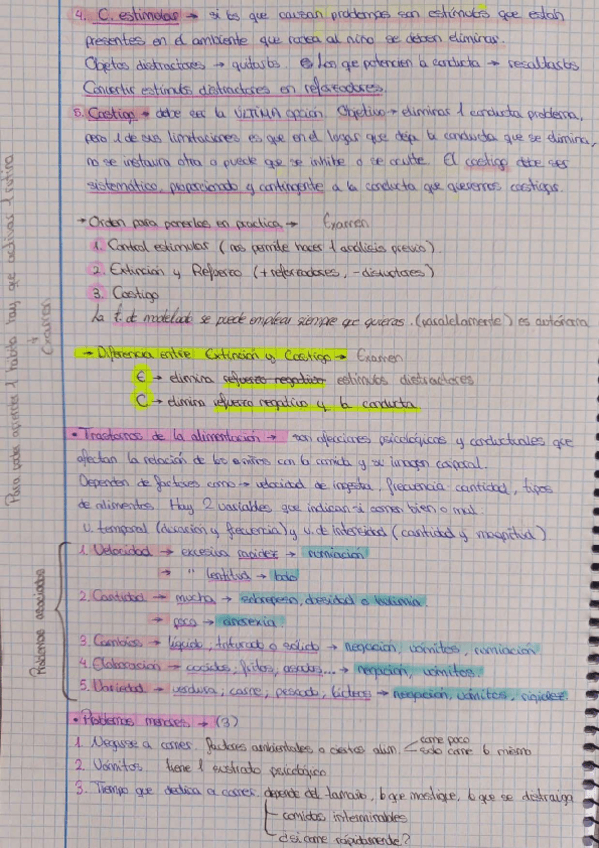 4. C. estimulos → si los que causan problemas son estímulos que están
presentes en el ambiente que rodea al niño se deben eliminar.
Objetos distractores → quitarlos. Los que potencien la conducta → resaltarlos
Convertir estímulos distractores en reforzadores.
5. Castigo → debe ser la ÚLTIMA opción. Objetivo → eliminar 1 conducta problema,
pero 1 de sus limitaciones es que en el lugar que deja la conducta que se elimina,
no se instaura otra o puede que se inhiba o se oculte. El castigo debe ser
sistemático, proporcionado y contingente a la conducta que queremos castigar.
→ Orden para ponerlas en practica → Examen
1. Control estimulos (nos permite hacer 1 análisis previo).
2. Extinción y Refuerzo (+ reforzadores, - distractores)
3. Castigo
La t. de modelado se puede emplear siempre que quieras. (paralelamente) es autónoma
→ Diferencia entre Extinción y Castigo → Examen
E → elimina refuerzo negativo estimulos distractores
C → elimina refuerzo negativo y la conducta
• Trastornos de la alimentación → son afecciones psicológicas y conductuales que
afectan la relación de los niños con la comida y su imagen corporal.
Dependen de factores como → velocidad de ingesta, frecuencia cantidad, tipos
de alimentos. Hay 2 variables que indican si comen bien o mal.
v. temporal (duración y frecuencia) y v. de intensidad (cantidad y magnitud)
1. Velocidad → excesiva rapidez → rumiación
→ " lentitud → bolo
2. Cantidad → mucha → sobrepeso, obesidad o bulimia
→ poca → anorexia
3. Cambios → líquido, triturado o sólido → negación, vómitos, rumiación
4. Elaboración → cocidos, fritos, asados... → negación, vómitos.
5. Variedad → verdura, carne, pescado, lácteos → negación, vómitos, rigidez
• Problemas menores → (3)
1. Negarse a comer. factores ambientales o ciertos alim.
come poco
solo come lo mismo
2. Vómitos tiene 1 sustrato psicológico
3. Tiempo que dedica a comer. depende del tamaño, lo que mastique, lo que se distraiga
comidas interminables
¿si come rápidamente?
Para poder aprender 1 hábito hay que activar 1 rutina
Examen
Problemas asociados